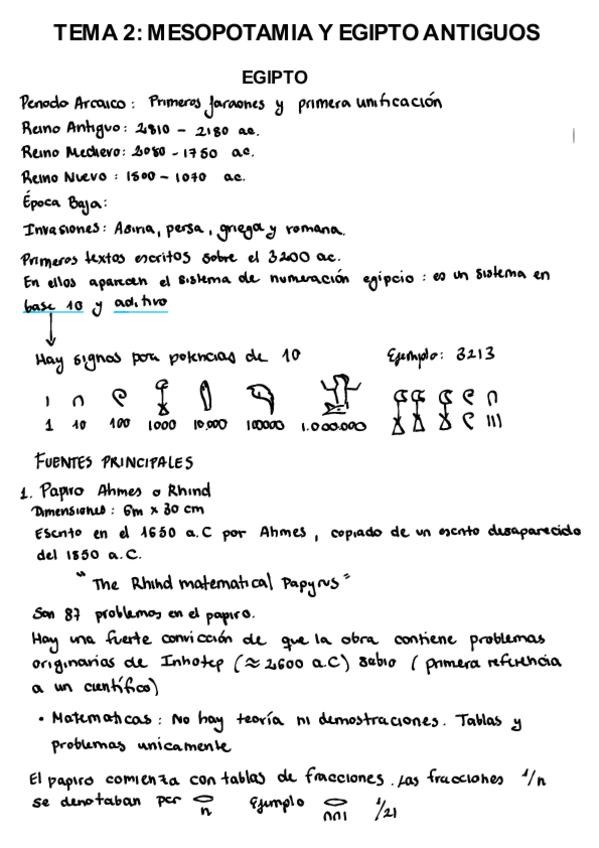 TEMA 2: MESOPOTAMIA Y EGIPTO ANTIGUOS
EGIPTO
Periodo Arcaico: Primeros faraones y primera unificación
Reino Antiguo: 2810 - 2180 ac.
Reino Medievo: 2080 - 1750 ac.
Reino Nuevo: 1500 - 1070 ac.
Época Baja:
Invasiones: Asiria, persa, griega y romana.
Primeros textos escritos sobre el 3200 ac.
En ellos aparecen el sistema de numeración egipcio: es un sistema en
base 10 y aditivo
Hay signos para potencias de 10 Ejemplo: 3213
1 10 100 1000 10.000 100000 1.000.000
FUENTES PRINCIPALES
1. Papiro Ahmes o Rhind
Dimensiones: 6m x 30 cm
Escrito en el 1650 a.C por Ahmes, copiado de un escrito desaparecido
del 1850 a.C.
"The Rhind matematical Papyrus"
Son 87 problemas en el papiro.
Hay una fuerte convicción de que la obra contiene problemas
originarias de Inhotep (≈ 2600 a.C) sabio (primera referencia
a un científico)
• Matematicas: No hay teoría ni demostraciones. Tablas y
problemas unicamente
El papiro comienza con tablas de fracciones. Las fracciones 1/n
se denotaban por n Ejemplo 1/21